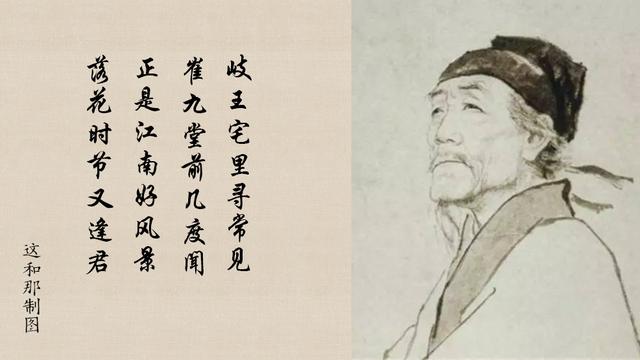 岐王宅里寻常见
崔九堂前几度闻
正是江南好风景
落花时节又逢君
这和那制图